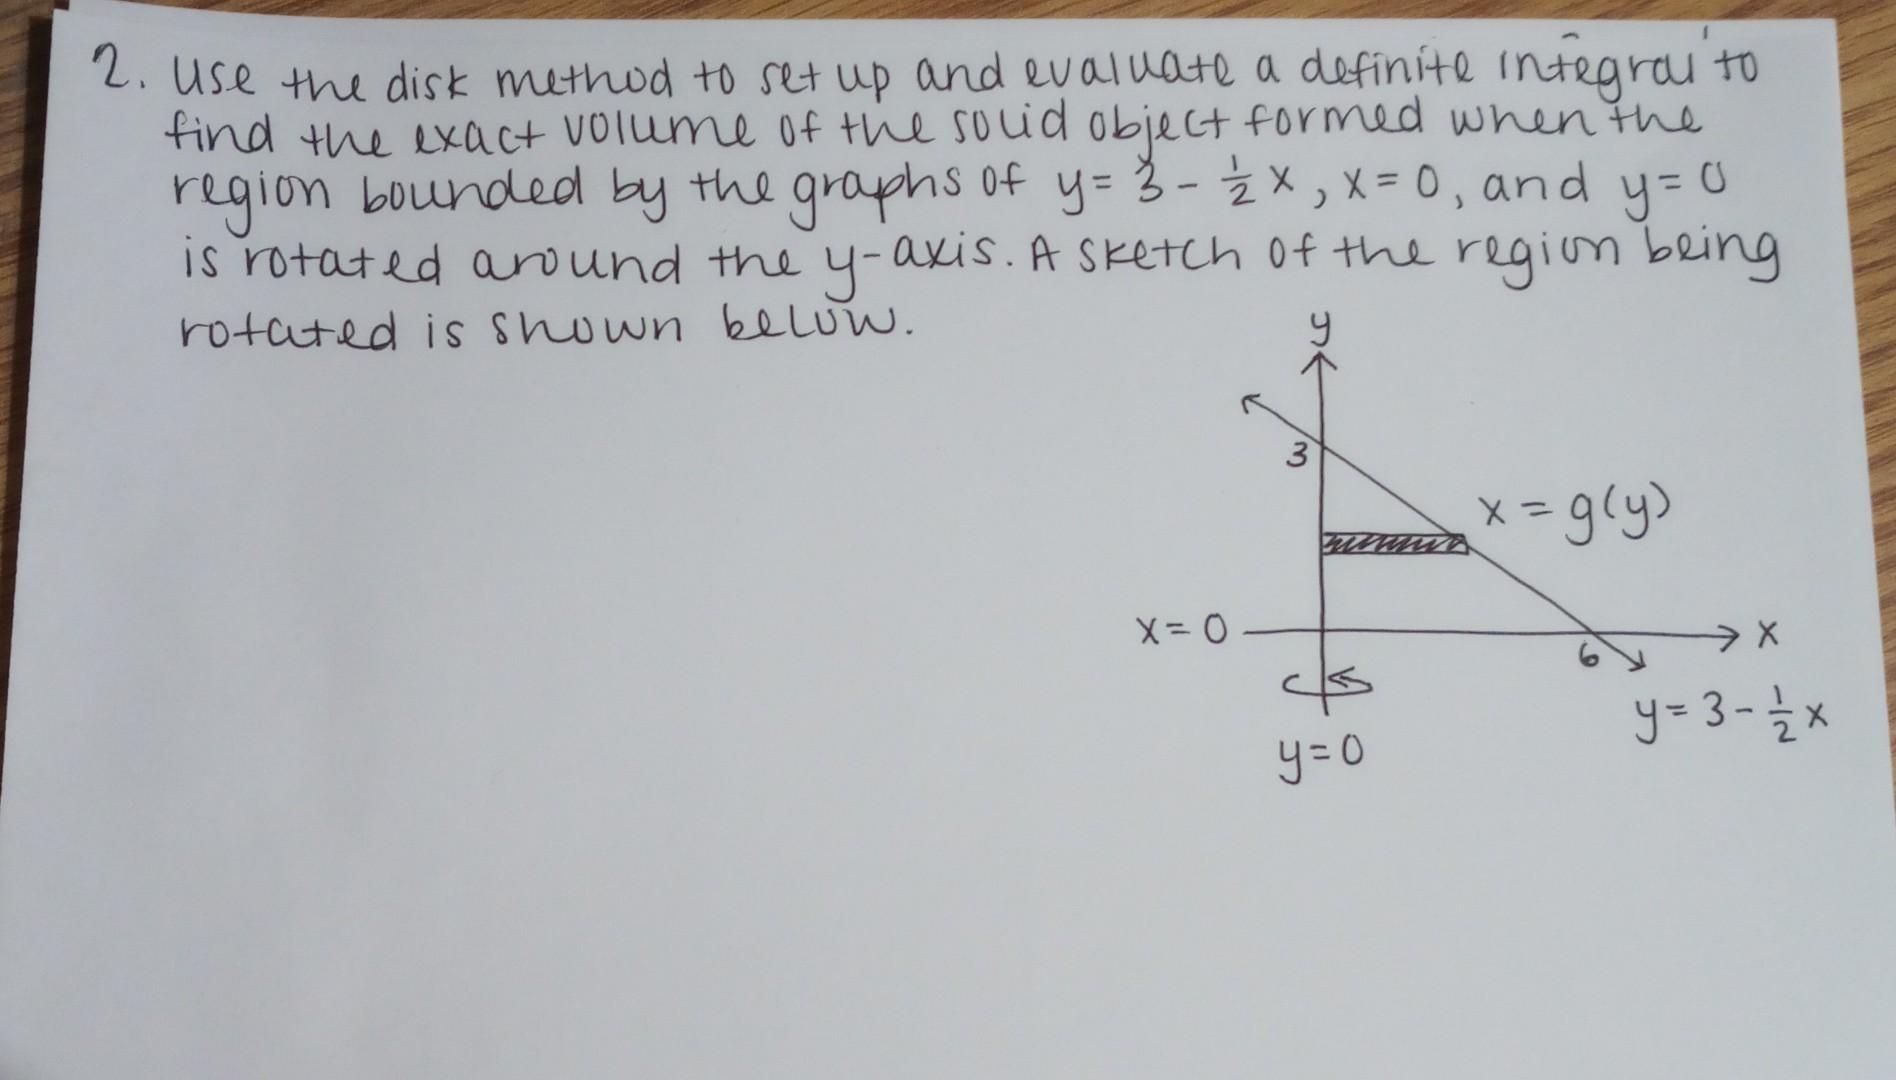 2. Use the disk method to set up and evaluate a definite integral to
find the exact volume of the solid object formed when the
region bounded by the graphs of y = 3 - 1/2 x, x = 0, and y = 0
is rotated around the y-axis. A sketch of the region being
rotated is shown below.
y
3
x = g(y)
x = 0
x
6
y = 3 - 1/2 x
y = 0